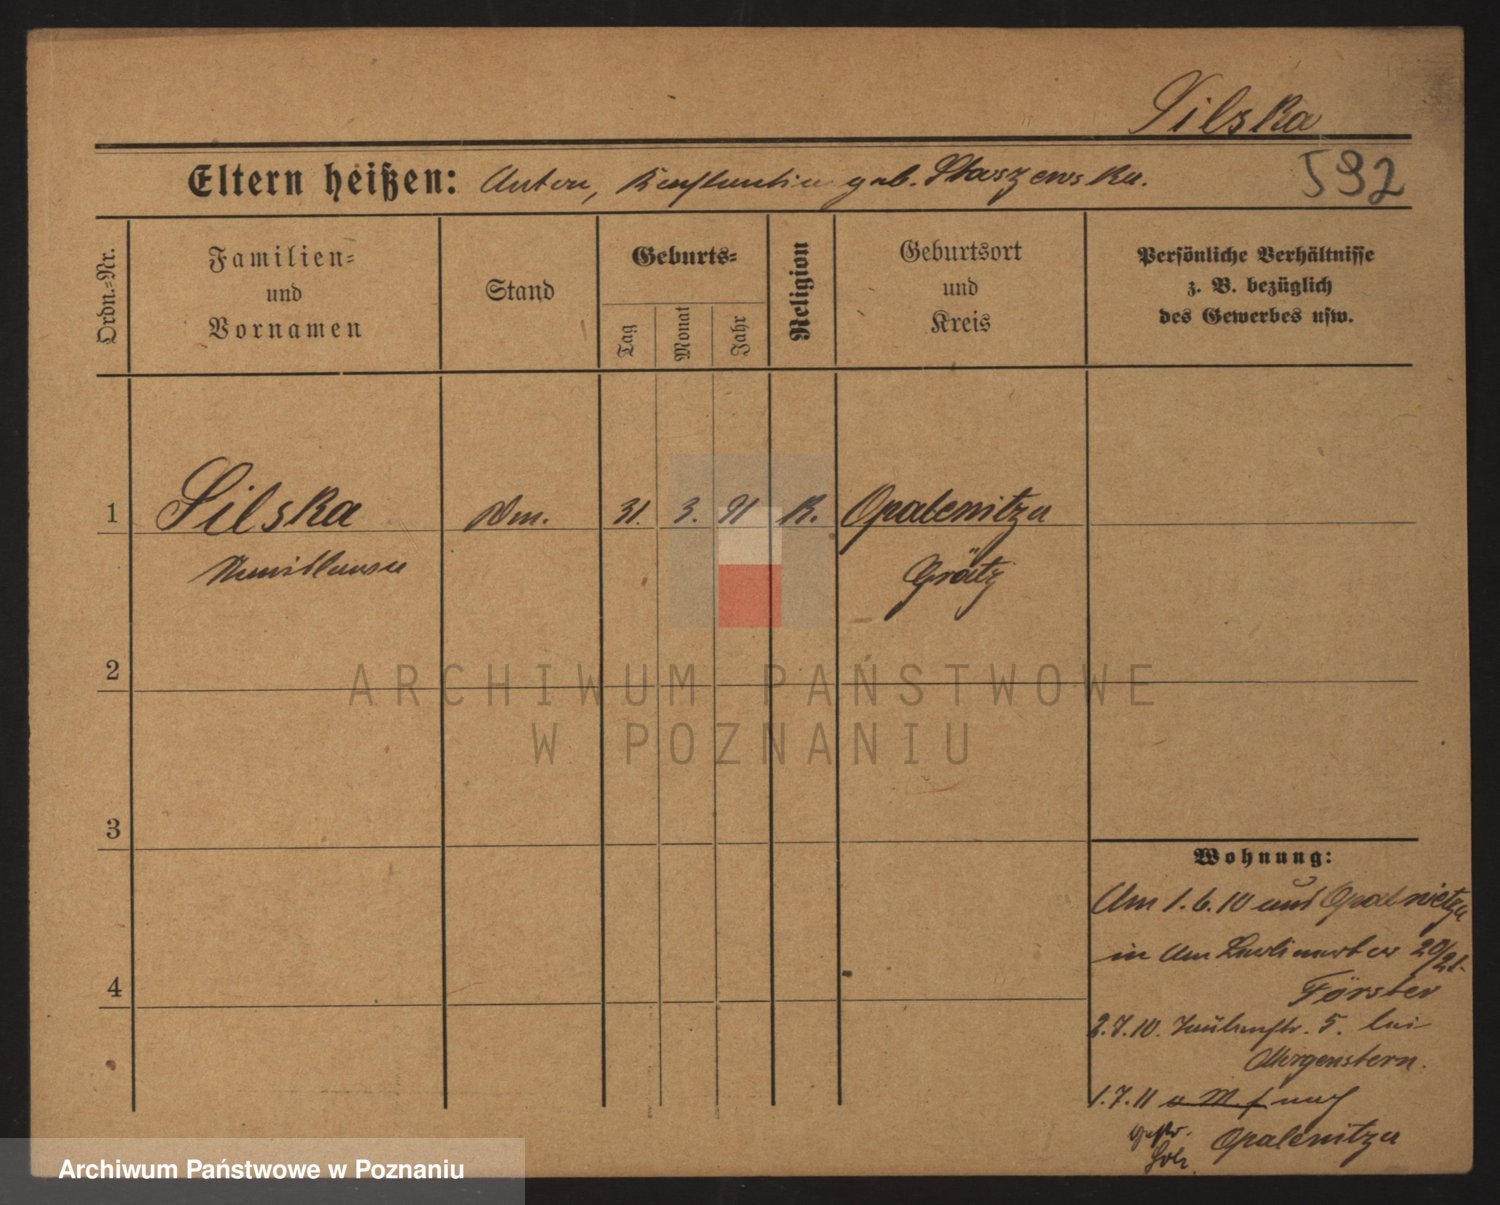 Silska
Eltern heißen: Anton, Konstantia geb. Staszewska.
592
Ordn.=Nr.
Familien=
und
Vornamen
Stand
Geburts=
Tag
Monat
Jahr
Religion
Geburtsort
und
Kreis
Persönliche Verhältnisse
z. B. bezüglich
des Gewerbes usw.
1
Silska
Dm.
31.
3.
91
K.
Opalenitza
Grätz
2
ARCHIWUM PAŃSTWOWE
W POZNANIU
3
Wohnung:
Am 1.6.10 aus Opalenitza
in Am 20/21.
Förster
4
2.7.10. 5. bei
Morgenstern.
1.7.11 a. M. f nach
Opalenitza
Archiwum Państwowe w Poznaniu